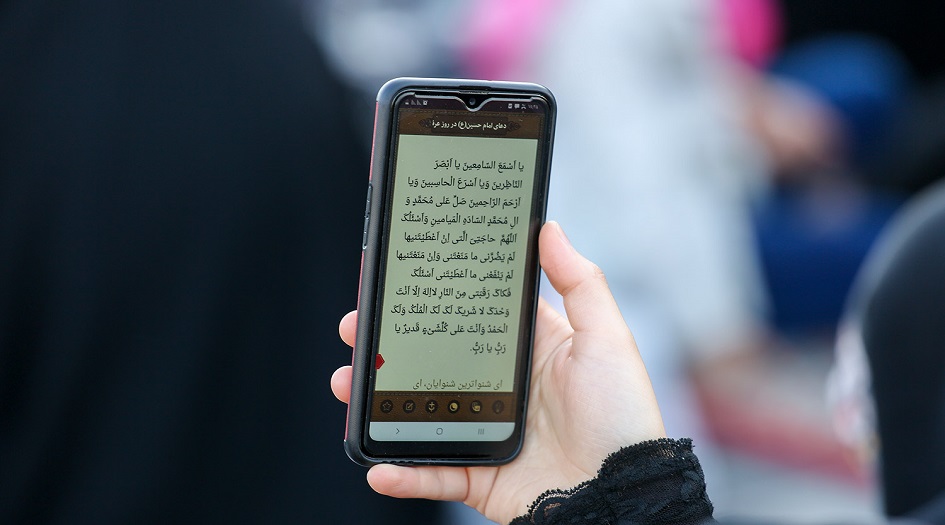 دعای امام حسین(ع) در روز عرفة
یا اَسْمَعَ السّامِعینَ یا اَبْصَرَ
النّاظِرینَ وَیا اَسْرَعَ الْحاسِبینَ وَیا
اَرْحَمَ الرّاحِمینَ صَلِّ عَلی مُحَمَّدٍ وَ
الِ مُحَمَّدٍ السّادَهِ الْمَیامینِ وَاَسْئَلُکَ
اَللّهُمَّ حاجَتِیَ الَّتی اِنْ اَعْطَیْتَنیها
لَمْ یَضُرَّنی ما مَنَعْتَنی وَاِنْ مَنَعْتَنیها
لَمْ یَنْفَعْنی ما اَعْطَیْتَنی اَسْئَلُکَ
فَکاکَ رَقَبَتی مِنَ النّارِ لااِلهَ اِلاّ اَنْتَ
وَحْدَکَ لا شَریکَ لَکَ لَکَ الْمُلْکُ وَلَکَ
الْحَمْدُ وَاَنْتَ عَلی کُلِّشَیْءٍ قَدیرٌ یا
رَبُّ یا رَبُّ.
ای شنواترین شنوایان، ای